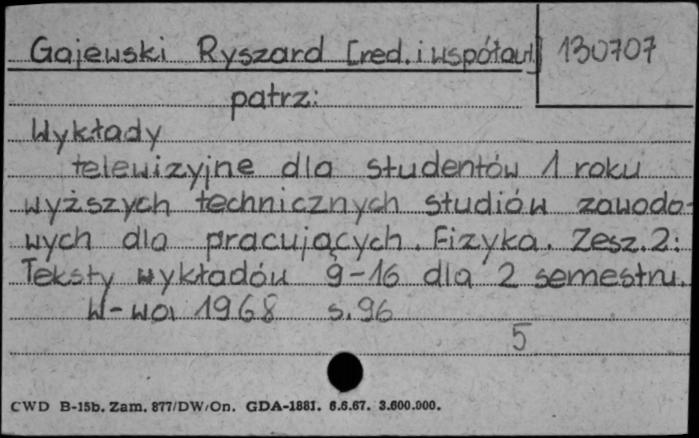 Gajewski Ryszard [red. i współaut.] 130707
patrz:
Wykłady
telewizyjne dla studentów 1 roku
wyższych technicznych studiów zawodo-
wych dla pracujących. Fizyka. Zesz. 2:
Teksty wykładów 9-16 dla 2 semestru.
W-wa 1968 s. 96
5
CWD B-15b. Zam. 877/DW/On. GDA-1881. 6.6.67. 3.600.000.